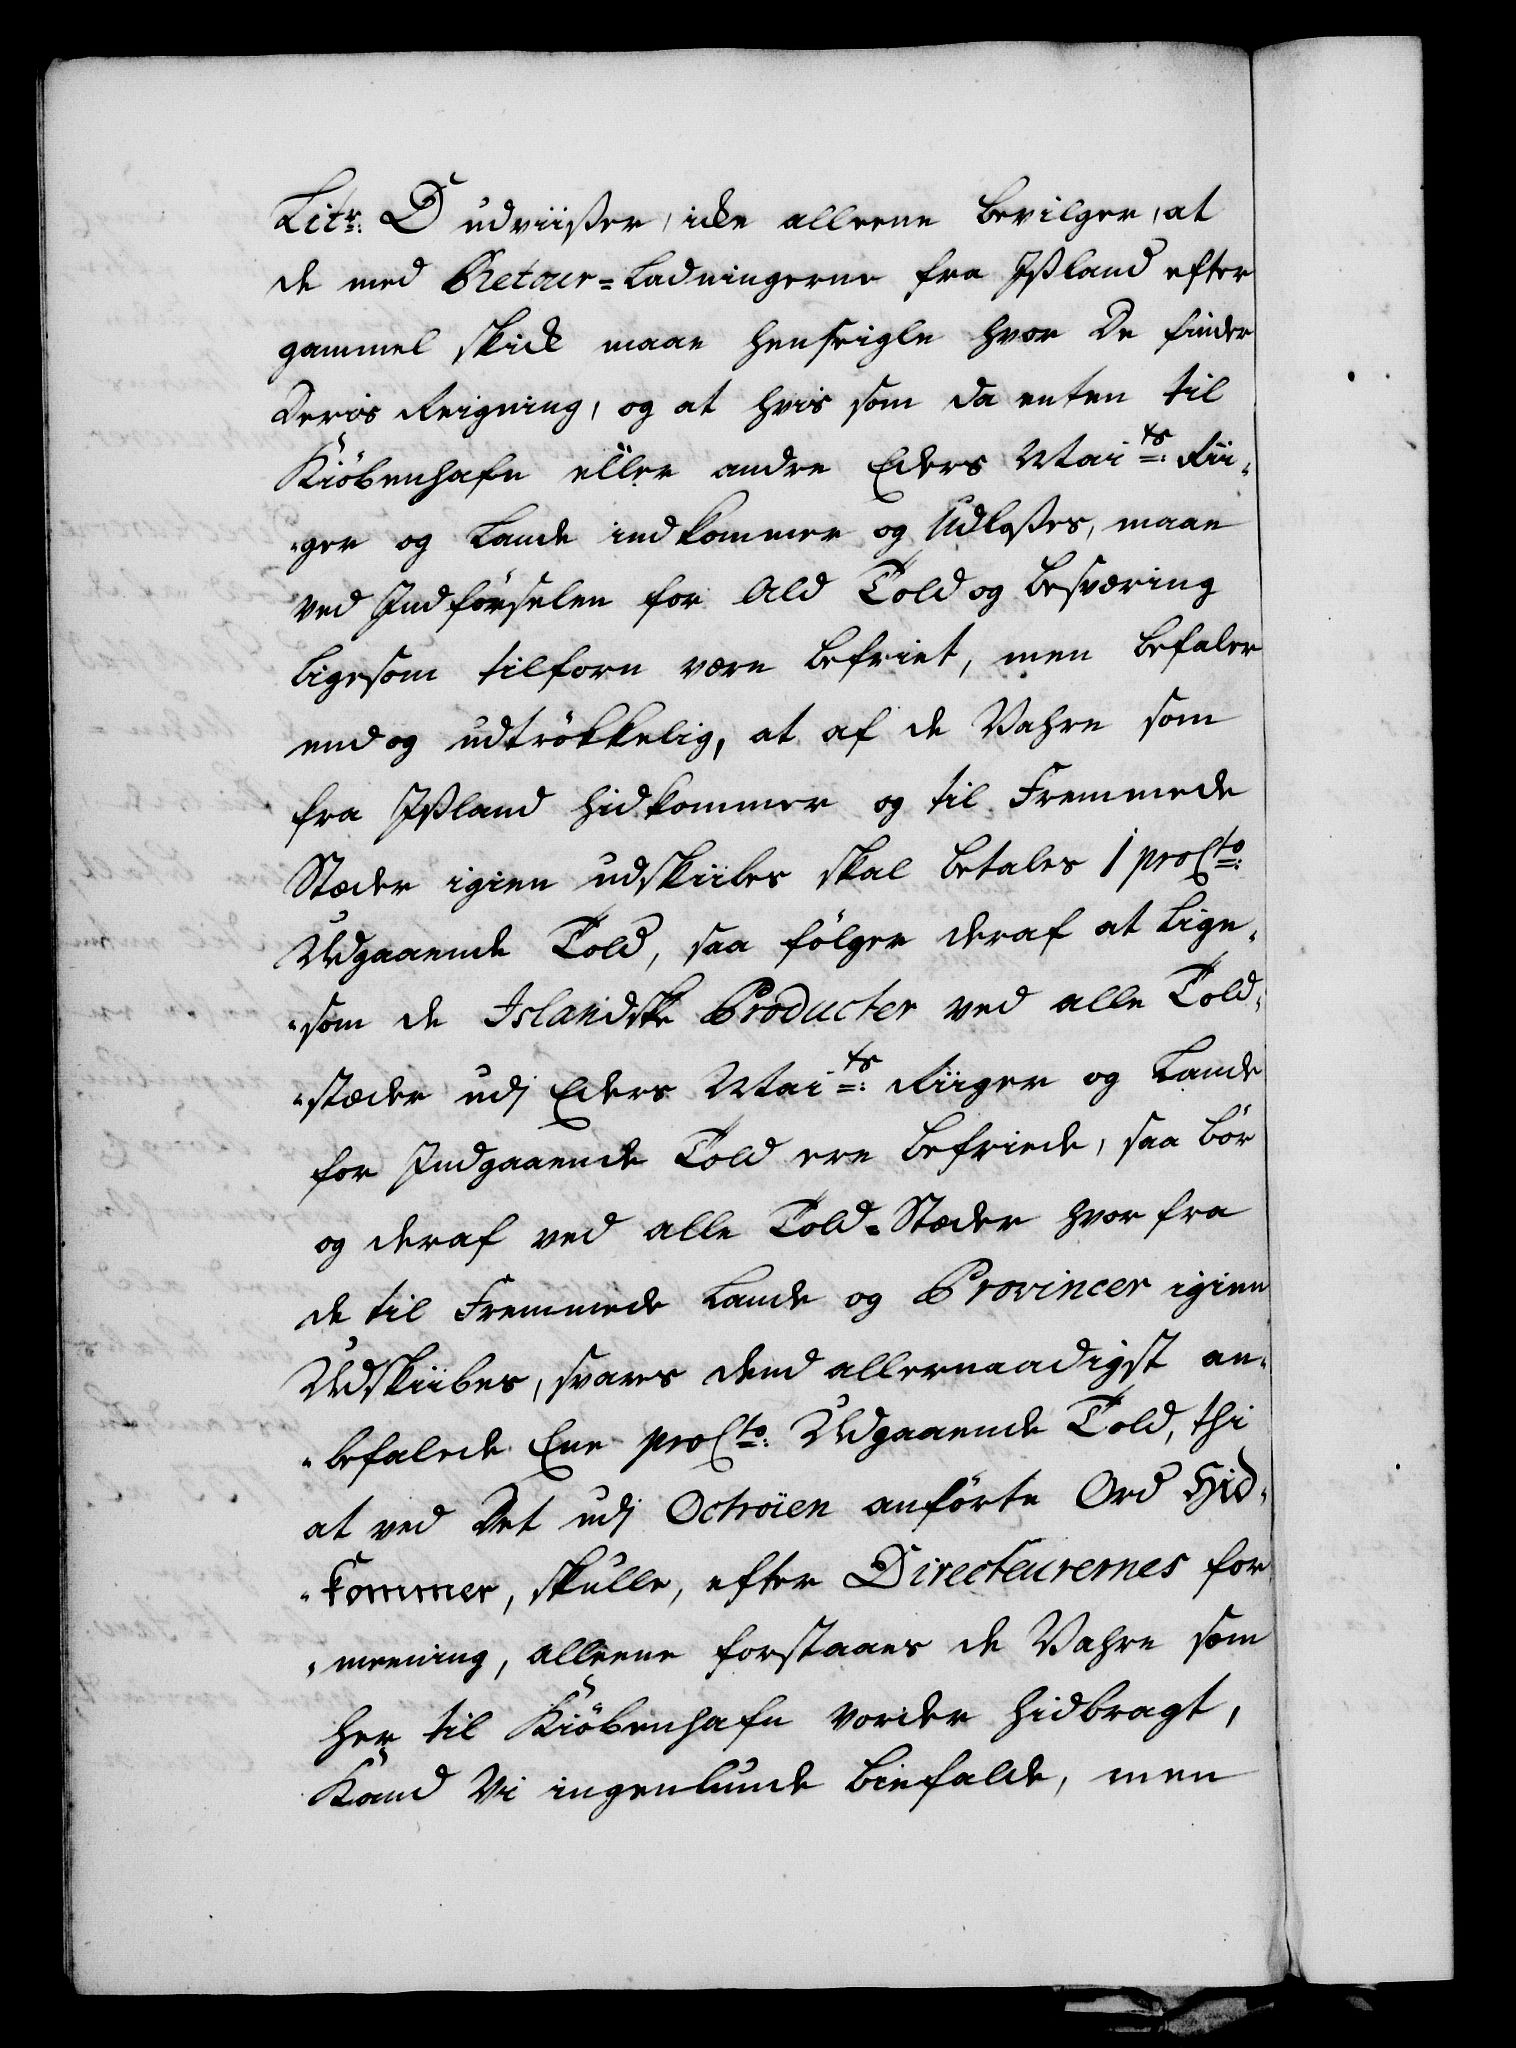 Litr: D udviißer, icke alleene bevilger, at
de med Retour=Ladningerne fra Ißland efter
gammel skick maae henseigle hvor De finder
Deris Reigning, og at hvis som da enten til
Kiöbenhafn eller andre Eders Maits: Rii-
-ger og Lande indkommer og Udloßes, maae
ved Indförselen for Ald Told og besværing
ligesom tilforn være befriet, men befaler
end og udtrökkelig, at af de Vahre som
fra Ißland hidkommer og til Fremmede
Stæder igien udskiibes skal betales 1 proCto:
Udgaaende Told, saa fölger deraf at lige-
-som de Islandske Producter ved alle Told-
-stæder udj Eders Maits: Riiger og Lande
for Indgaaende Told ere befriede, saa bör
og deraf ved alle Told=Stæder hvor fra
de til Fremmede Lande og Provincer igien
Udskiibes, svares dend allernaadigst an-
-befalede Ene proCto: Udgaaende Told, thi
at ved Det udj Octroien anförte Ord Hid-
-kommer, skulle, efter Directeurernes for
-meening, alleene forstaaes de Vahre som
her til Kiöbenhafn vorder hidbragt,
Kand Vi ingenlunde biefalde, men